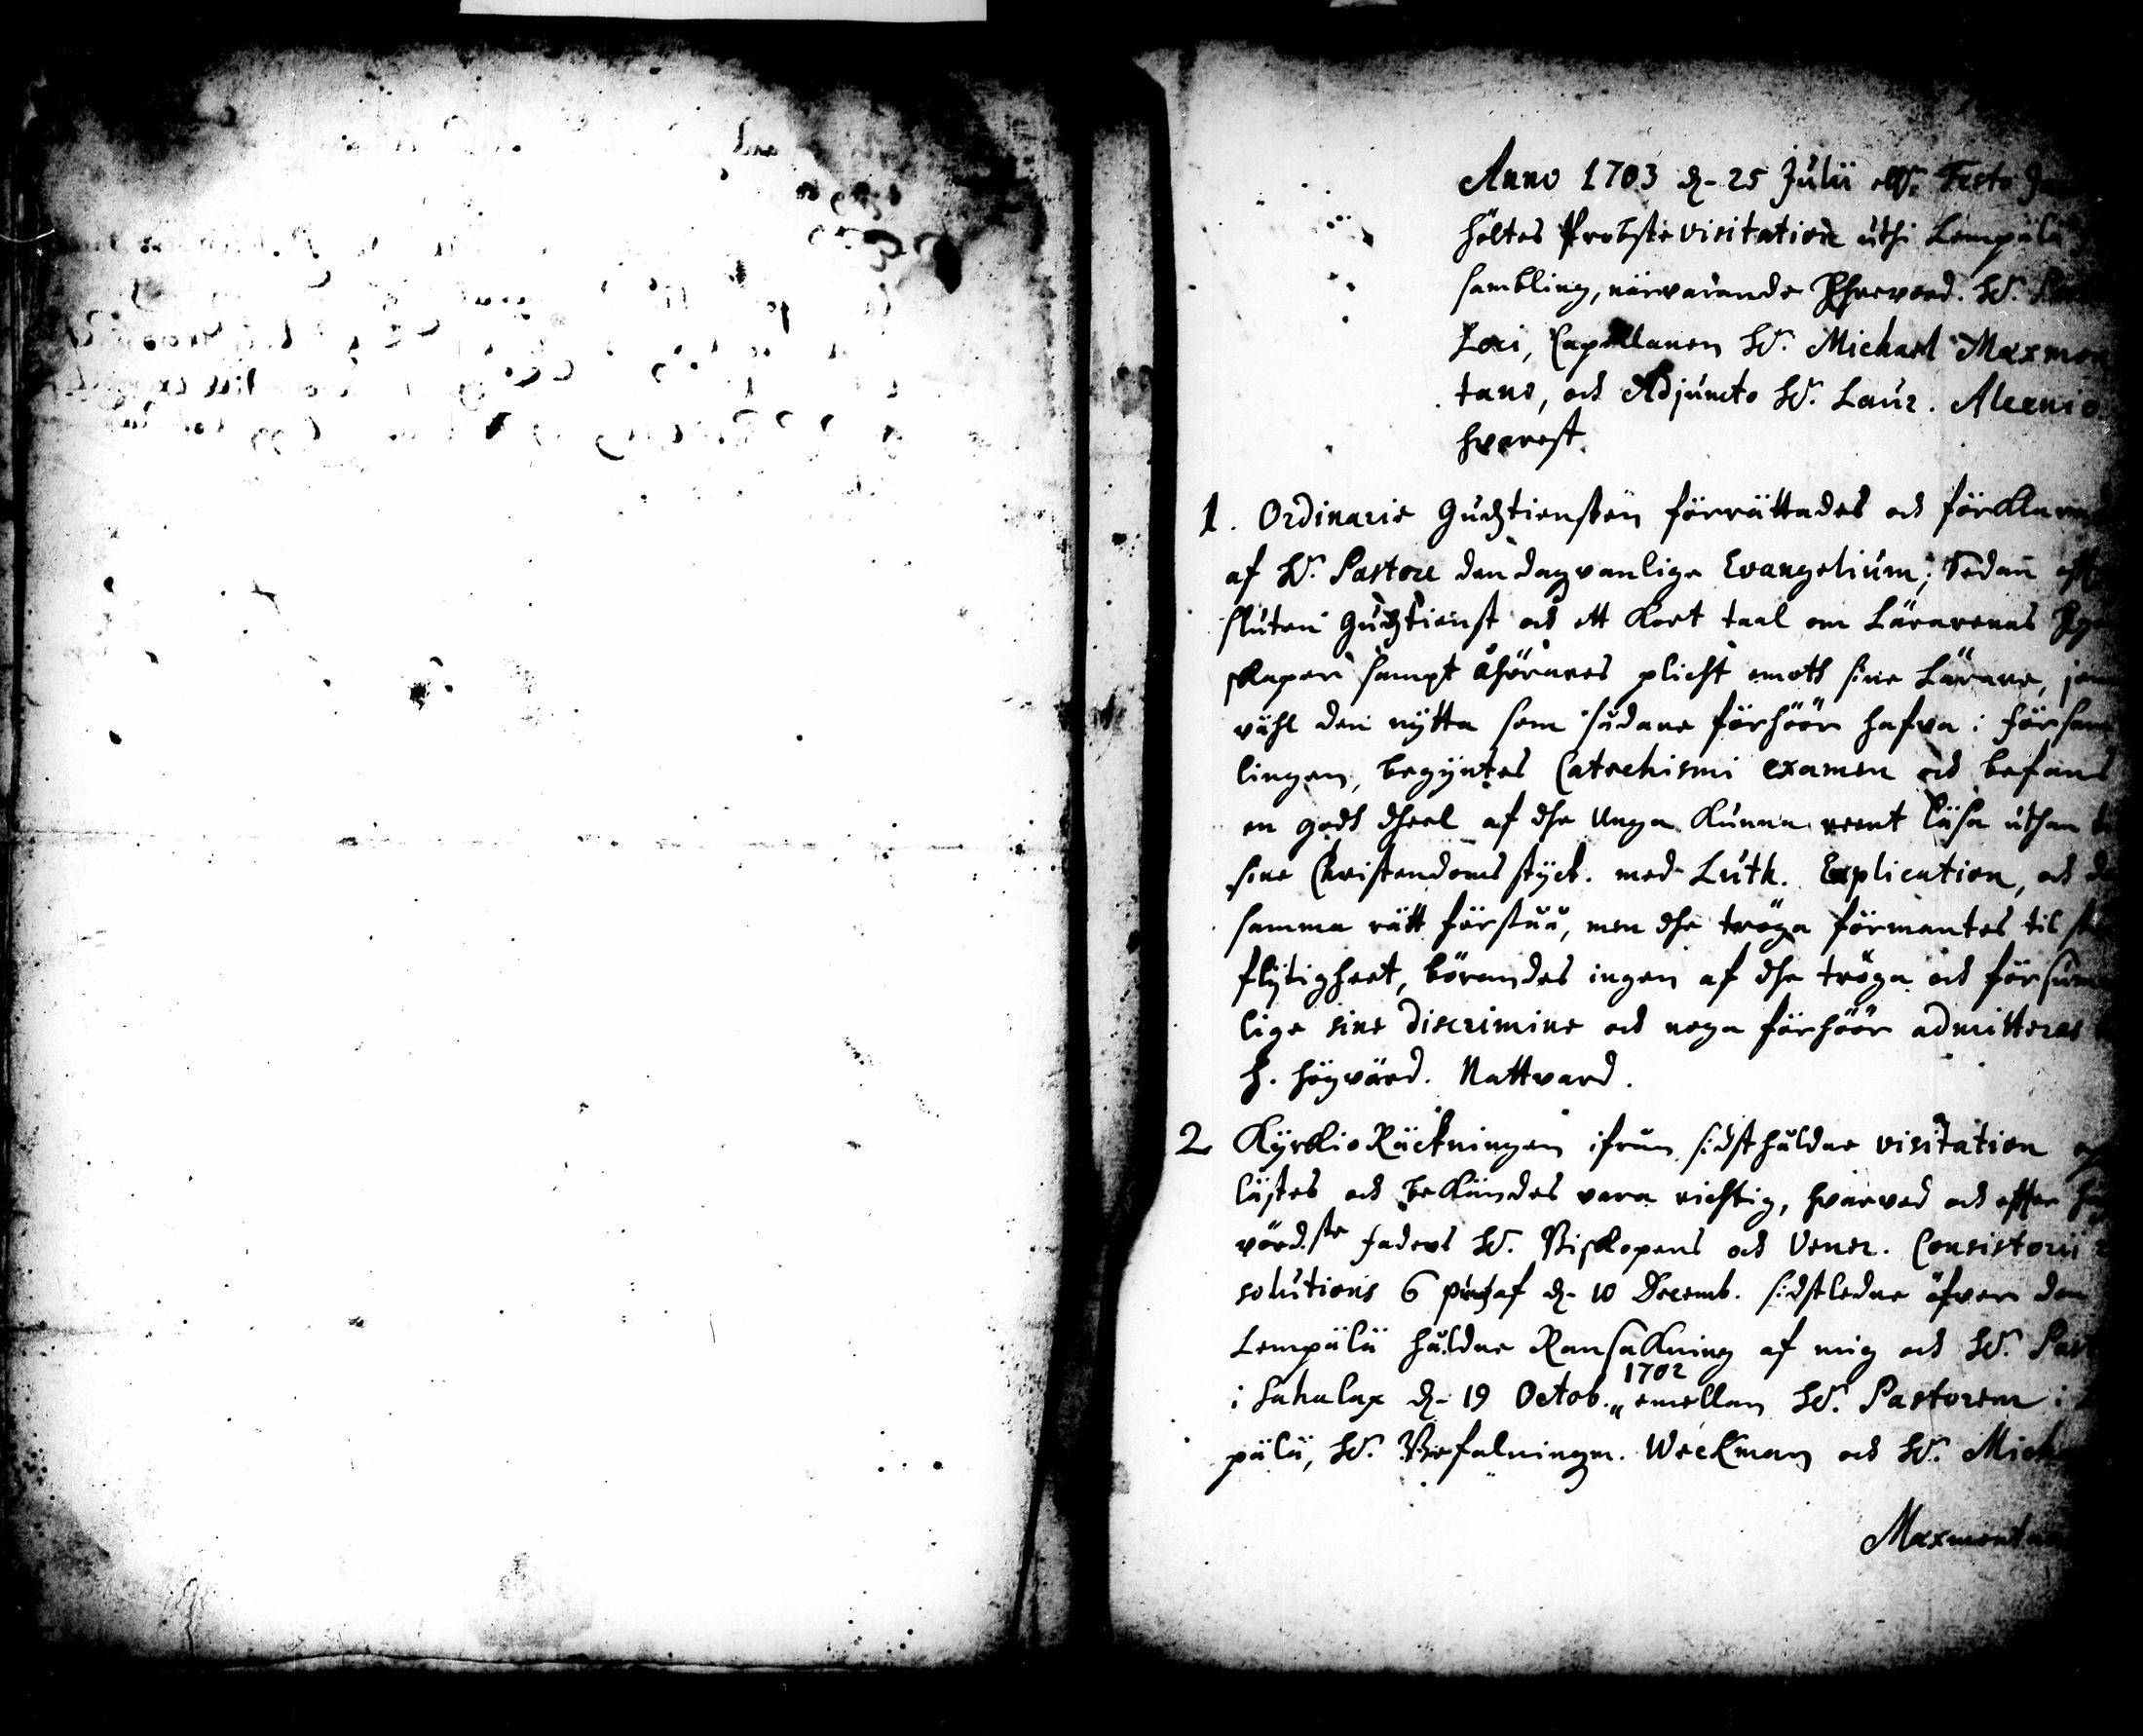 Anno 1703 d. 25 Julii Festo
höltes Probste visitation uthi Lempälä
sambling, närvarande Ehrevörd. H.
Loci, Capellanen H. Michael Maxmon
tano, och Adjuncto H. Laur. Alcenio
hvarest
1. Ordinarie Gudztiensten förrättades och förklarad
af H. Pastore den dagvanlige Evangelium; Sedan
sluten Gudztienst och ett kort taal om Lärarenas
skaper sampt åhörares plicht emoth sine Lärare, jem
vähl den nytta som sådane förhöör hafva i försam
lingen, begyntes Catechismi examen och befans
en godh dheel af dhe unga kunna reent läsa uthan
sine Christendoms styck. med Luth. Explication, och
samma rätt förståå, men dhe tröga förmantes til
flytigheet, börandes ingen af dhe tröga och försum
lige sine discrimine och noga förhöör admitteras
h. högvärd. Nattvard.
2 Kyrkio Räckningen ifrån sidsthåldne visitation
lästes och bekändes vara richtig, hvarved och effter
vörd.ste faders H. Biskopens och Vener. Consistorii
solutions 6 punct af d. 10 Decemb. sidstledne öfver den
Lempälä håldne Ransakning af mig och H. Past
i Sahalax d. 19 Octob. 1702 emellan H. Pastorem i
pälä, H. Befalningzm. Weckman och H. Mich
Maxmontan